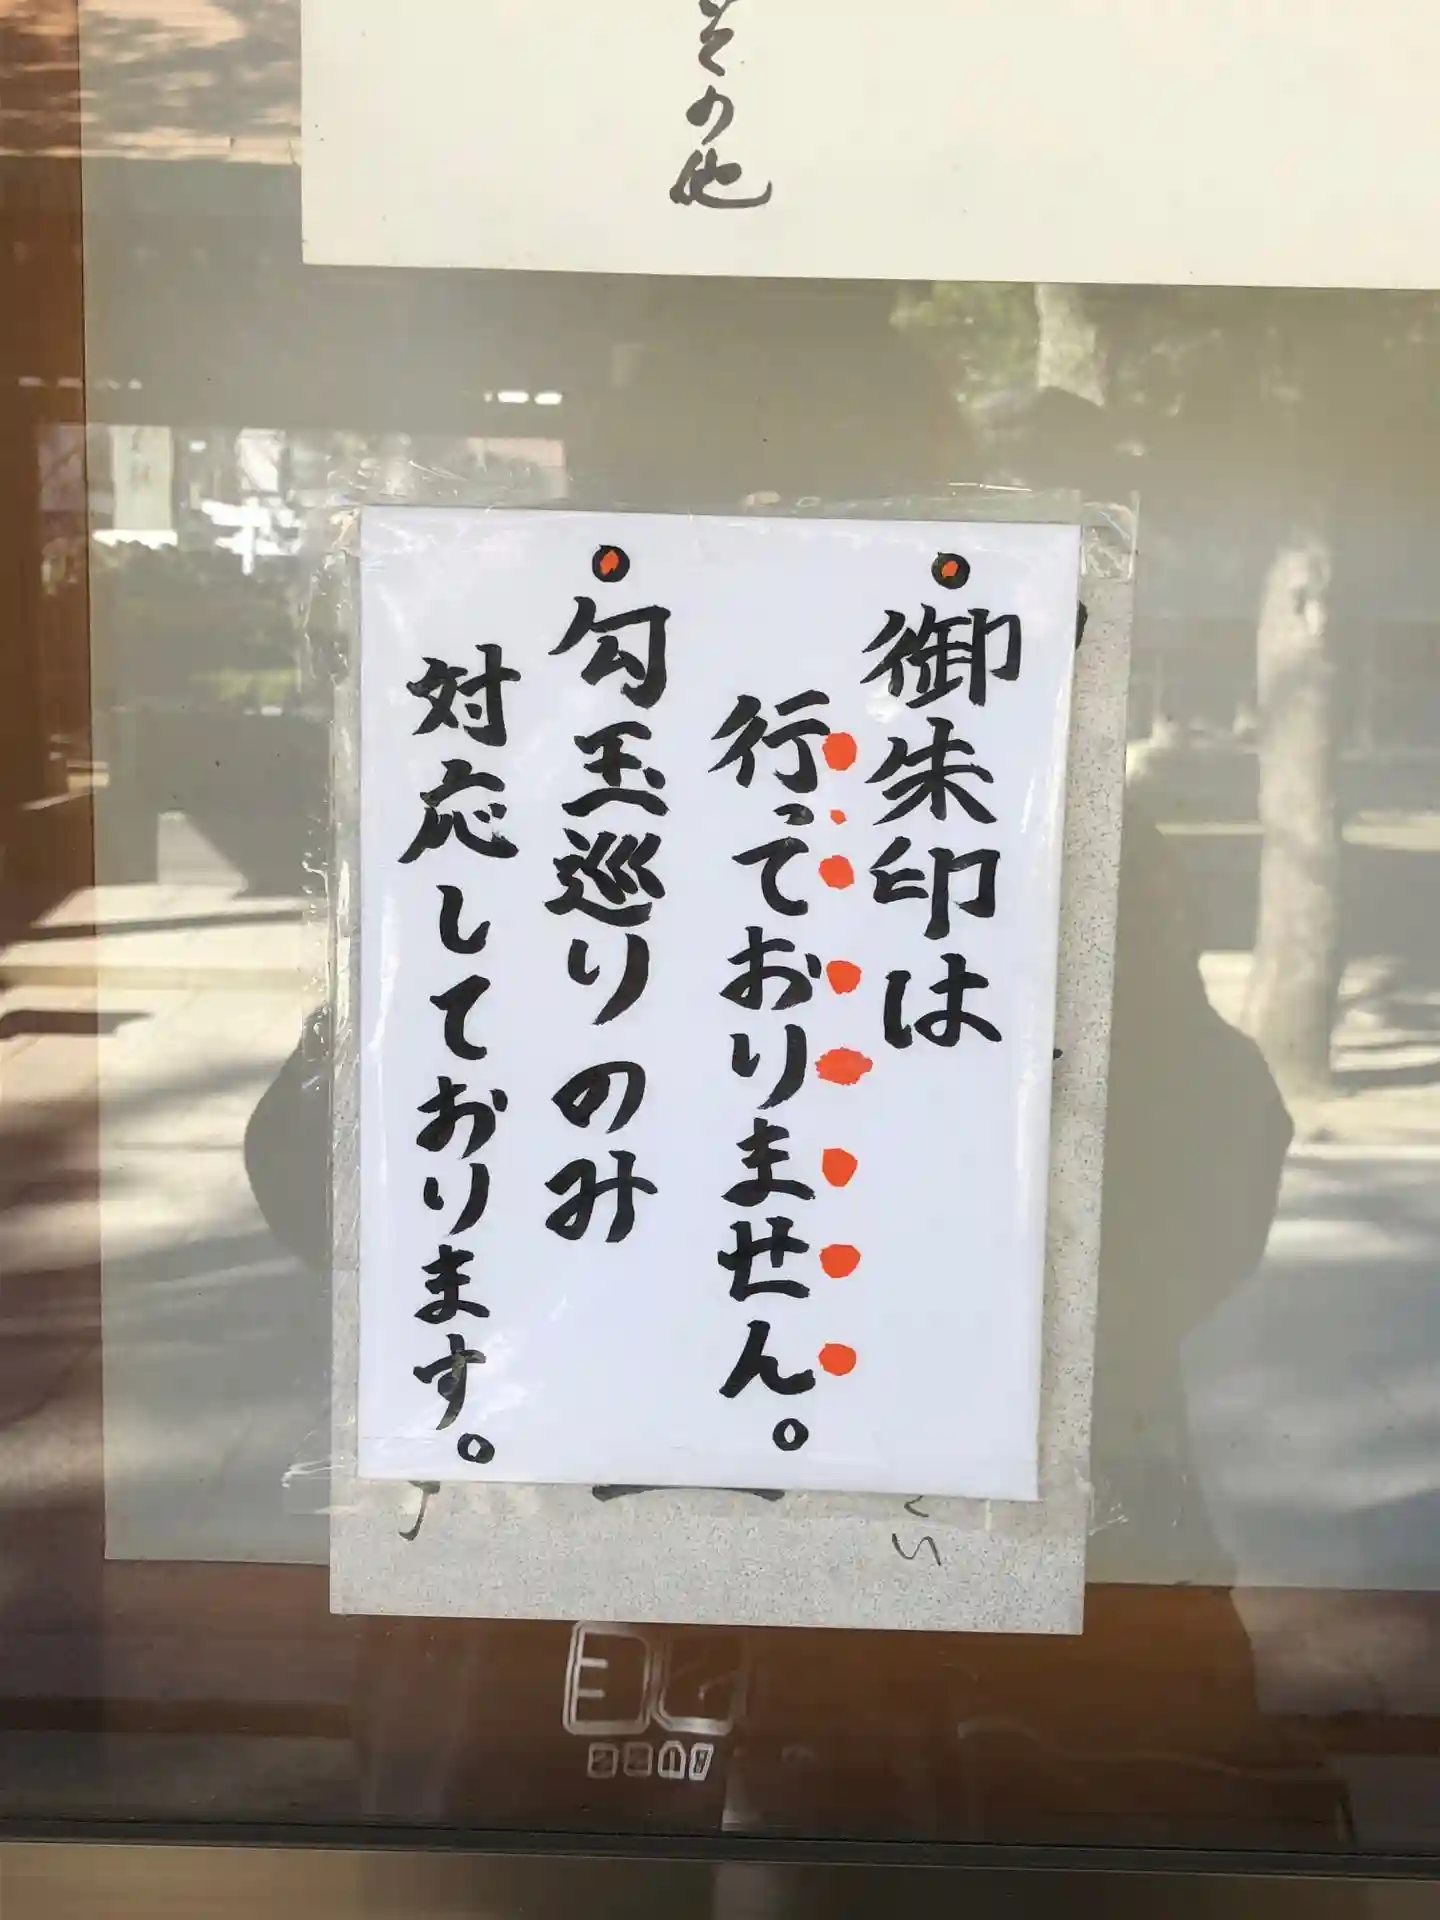 その他
・御朱印は
行っておりません。
・勾玉巡りのみ
対応しております。